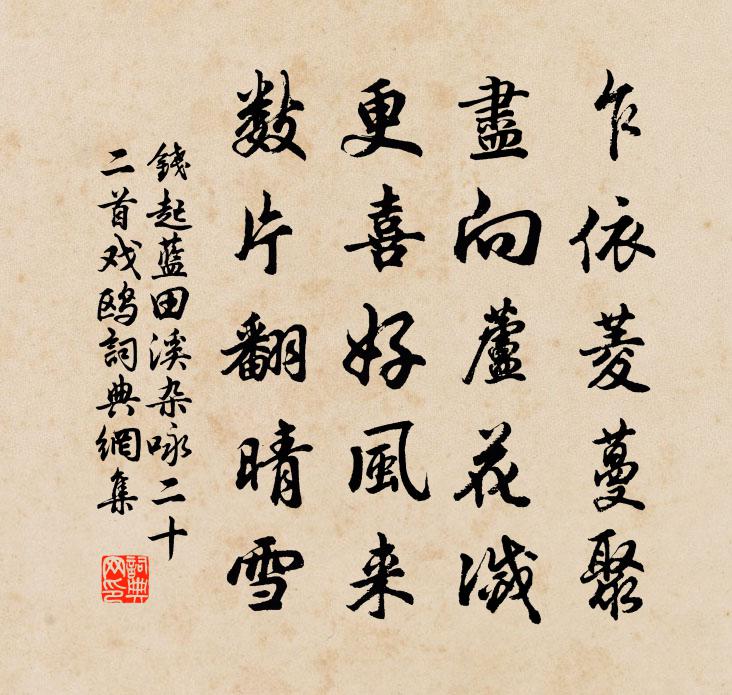 乍依菱蔓聚
盡向蘆花滅
更喜好風来
数片翻晴雪
錢起蓝田溪杂咏二十
二首戏鸥詞典網集
詞典网印